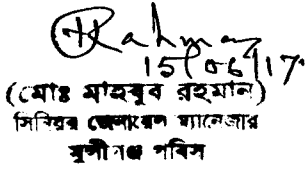 Rahman
15/06/17
(মোঃ মাহবুব রহমান)
সিনিয়র জেনারেল ম্যানেজার
মুন্সীগঞ্জ পবিস